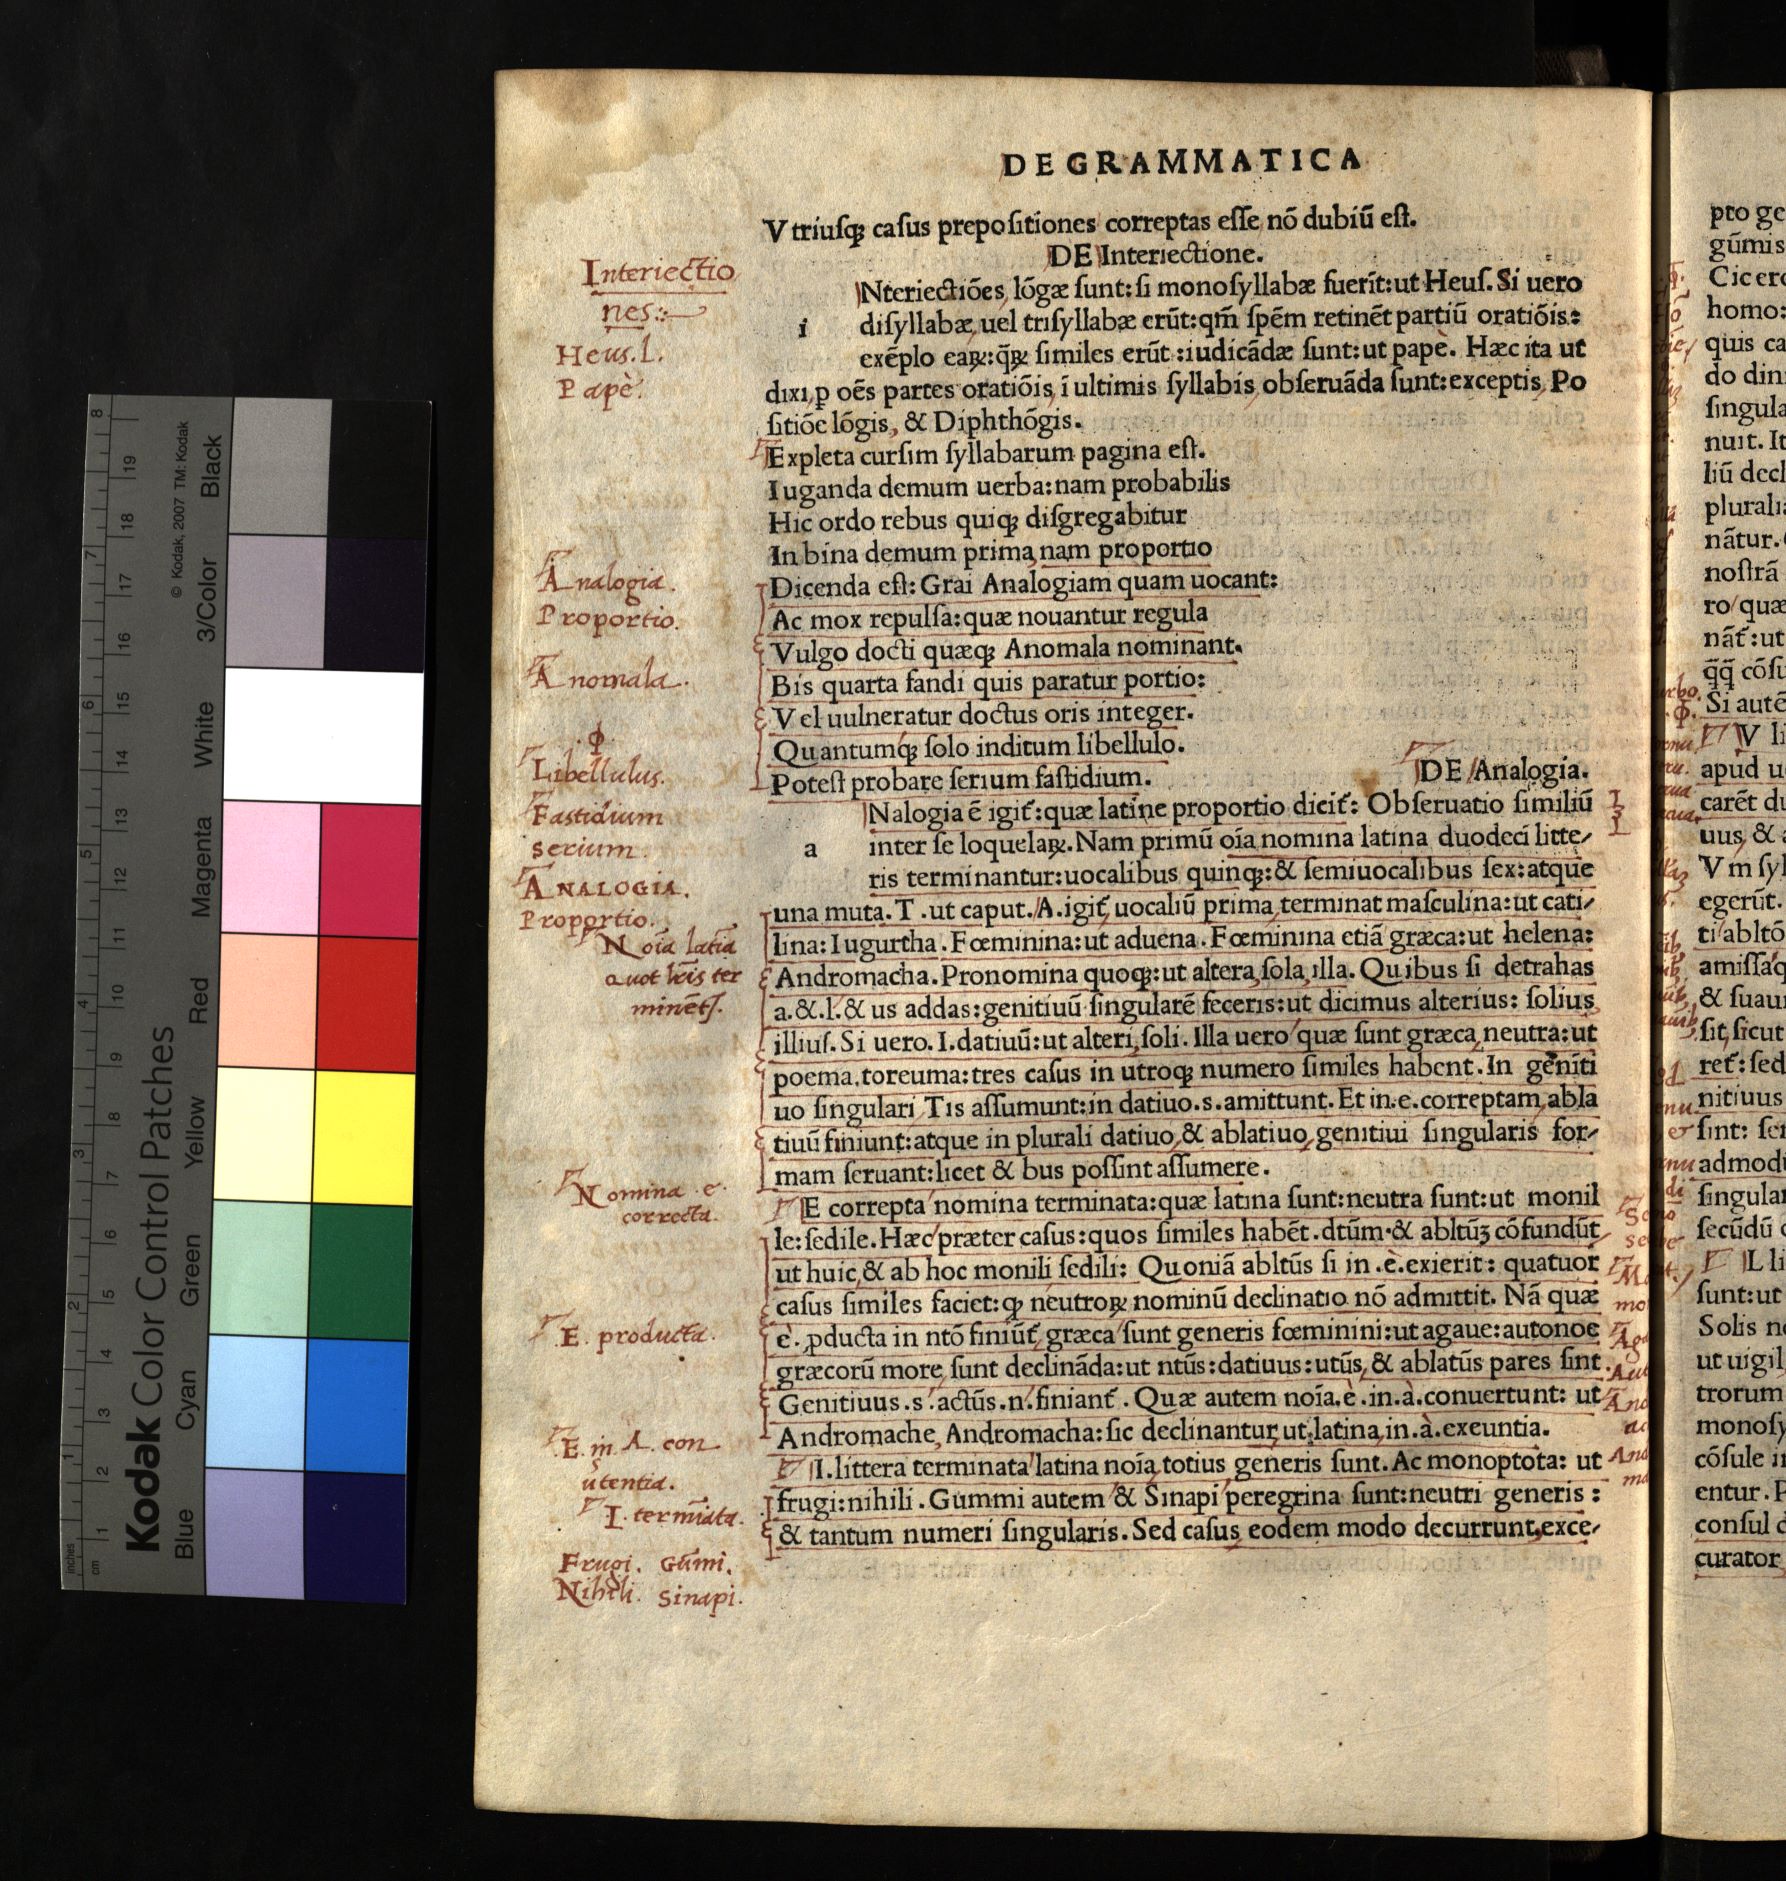 DE GRAMMATICA
Vtriuſqꝫ caſus prepoſitiones correptas eſſe nō dubiū eſt.
DE Interiectione.
Interiectio
nes
Heus. l.
Papè.
Nteriectiōes lōgæ ſunt: ſi monoſyllabæ fuerīt: ut Heuſ. Si uero
i diſyllabæ uel triſyllabæ erūt: qm̄ ſpēm retinēt partiū oratiōis:
exēplo eaꝝ: q̄ꝝ ſimiles erūt: iudicādæ ſunt: ut papè. Hæc ita ut
dixi, ꝑ oēs partes oratiōis, ī ultimis ſyllabis obſeruāda ſunt: exceptis Po
ſitiōe lōgis, & Diphthōgis.
Expleta curſim ſyllabarum pagina eſt.
Iuganda demum uerba: nam probabilis
Hic ordo rebus quiqꝫ diſgregabitur
In bina demum prima, nam proportio
Dicenda eſt: Grai Analogiam quam uocant:
Ac mox repulſa: quæ nouantur regula
Vulgo docti quæqꝫ Anomala nominant.
Bis quarta fandi quis paratur portio:
Vel uulneratur doctus oris integer.
Quantumqꝫ ſolo inditum libellulo.
Poteſt probare ſerium faſtidium.
Analogia.
Proportio.
Anomala.
ф
Libellulus.
Fastidium
serium.
ANALOGIA.
Proportio.
DE Analogia.
Nalogia ē igit̃: quæ latine proportio dicit̃: Obſeruatio ſimiliū
a inter ſe loquelaꝝ. Nam primū oīa nomina latina duodecī litte⸗
ris terminantur: uocalibus quinqꝫ: & ſemiuocalibus ſex: atque
una muta. T. ut caput. A. igit̃ uocaliū prima, terminat maſculina: ut cati⸗
lina: Iugurtha. Fœminina: ut aduena. Fœminina etiā græca: ut helena:
Andromacha. Pronomina quoqꝫ: ut altera, ſola, illa. Quibus ſi detrahas
a. &. I. & us addas: genitiuū ſingularē feceris: ut dicimus alterius: ſolius
illiuſ. Si uero. I. datiuū: ut alteri, ſoli. Illa uero quæ ſunt græca, neutra: ut
poema, toreuma: tres caſus in utroqꝫ numero ſimiles habent. In geniti
uo ſingulari Tis aſſumunt: in datiuo. s. amittunt. Et in. e. correptam, abla
tiuū finiunt: atque in plurali datiuo, & ablatiuo, genitiui ſingularis for⸗
mam ſeruant: licet & bus poſſint aſſumere.
E correpta nomina terminata: quæ latina ſunt: neutra ſunt: ut monil
le: ſedile. Hæc præter caſus: quos ſimiles habēt. dtūm. & abltūꝫ cōfundūt
ut huic, & ab hoc monili ſedili: Quoniā abltūs ſi in. è. exierit: quatuor
caſus ſimiles faciet: qꝫ neutroꝝ nominū declinatio nō admittit. Nā quæ
è. ꝓducta in ntō finiūt̃, græca ſunt generis fœminini: ut agaue: autonoe
græcorū more ſunt declināda: ut ntūs: datiuus: utūs, & ablatūs pares ſint.
Genitiuus. s. actūs. n. finiant̃. Quæ autem noīa. è. in. à. conuertunt: ut
Andromache, Andromacha: ſic declinantur, ut latina, in. à. exeuntia.
I. littera terminata latina noīa, totius generis ſunt. Ac monoptota: ut
frugi: nihili. Gummi autem & Sinapi peregrina ſunt: neutri generis:
& tantum numeri ſingularis. Sed caſus eodem modo decurrunt, exce⸗
Noīa latīa
quot lr̄is ter
minēt̃.
Nomina e.
correcta.
E. producta.
E. in A. con
utentia.
I. termīata.
Frugi. Gūmi.
Nihili. Sinapi.
pto ge
gūmis
Cicero
homo:
quis ca
do din
ſingula
nuit. It
liū decl
plurali
nātur.
noſtrā
ro quæ
nāt̃: ut
q̄q̄ cōſu
Si autē
V li
apud u
carēt du
uus, & a
Vm ſyl
egerūt.
ti abltō
amiſſa q
& ſuau
ſit, ſicut
ret̃: ſed
nitiuus
ſint: ſer
admodu
ſingular
ſecūdū
L li
ſunt: ut
Solis n
ut uigil
trorum
monoſy
cōſule i
entur. P
conſul
curator
Kodak Color Control Patches
© Kodak, 2007 TM: Kodak
Blue Cyan Green Yellow Red Magenta White 3/Color Black
inches 1 2 3 4 5 6 7 8
cm 1 2 3 4 5 6 7 8 9 10 11 12 13 14 15 16 17 18 19